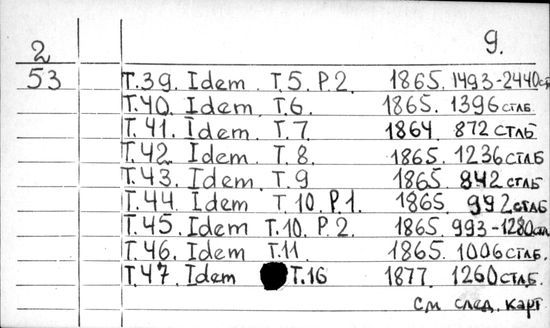 2 9.
53 Т.39. Idem Т.5. Р.2. 1865. 1493-2440 ст
Т.40. Idem Т.6. 1865. 1396 стлб.
Т.41. Idem. Т.7 1864. 872 стлб
Т.42 Idem. Т.8. 1865. 1236 стлб
Т.43. Idem. Т.9 1865. 842 стлб
Т.44. Idem Т.10. Р1. 1865. 992 стлб.
Т.45. Idem Т.10. Р.2. 1865. 993-1280
Т.46. Idem Т.11 1865. 1006 стлб.
Т.47. Idem Т.16 1877. 1260 стлб.
см след. карт